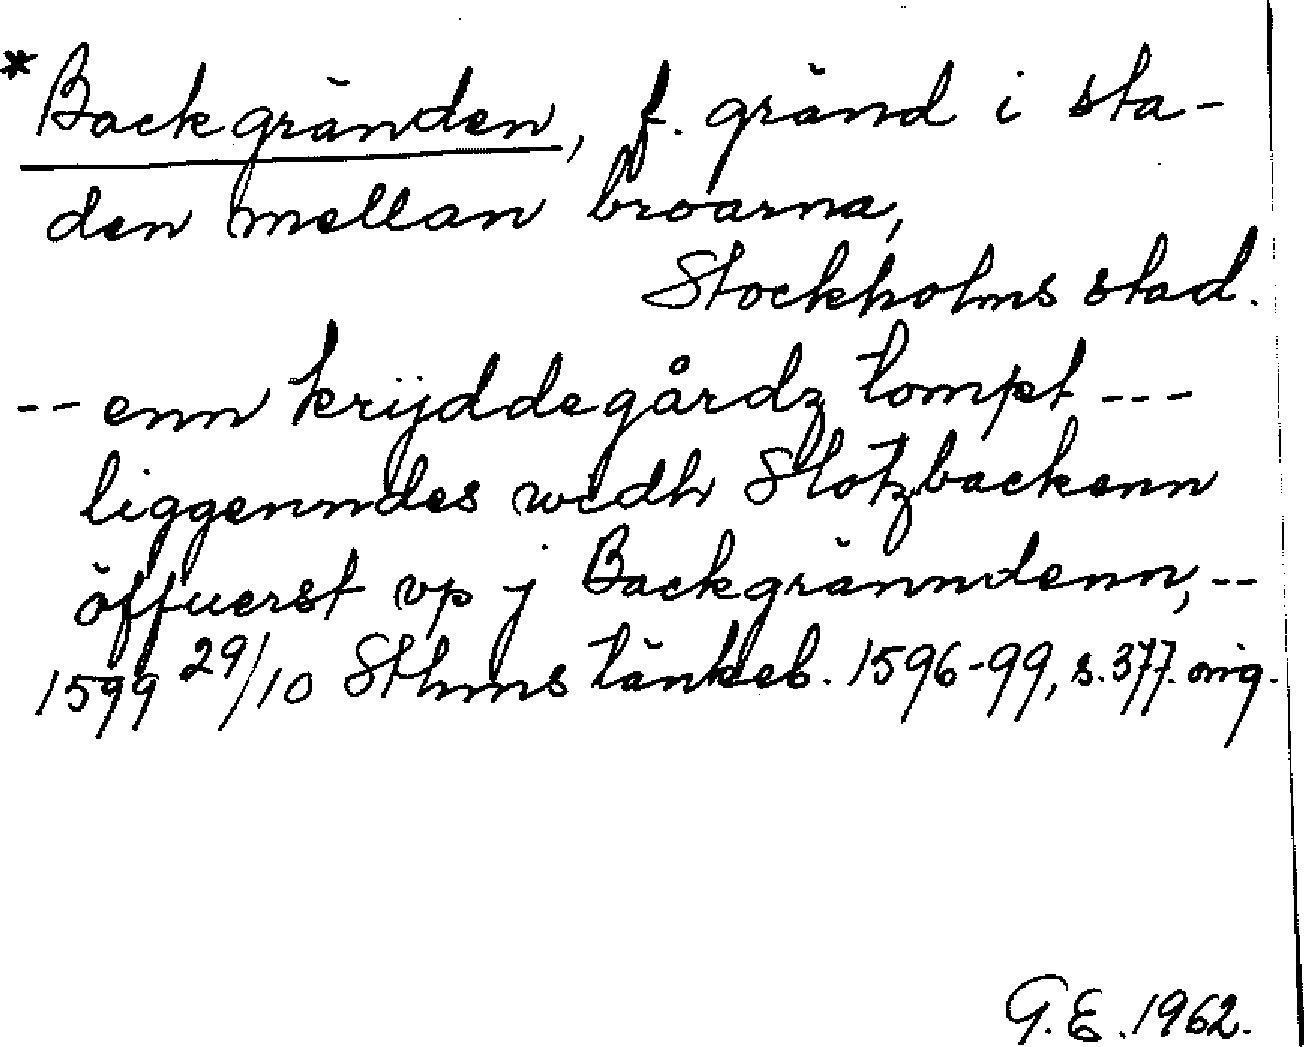 *Backgränden, f. gränd i sta-
den mellan broarna,
Stockholms stad.
-- enn krijddegårdz tompt ---
liggenndes widh Slotzbackenn
öffuerst vp j Backgränndenn, --
1599 29/10 Sthms tänkeb. 1596-99, s. 377. orig.
G.E. 1962.